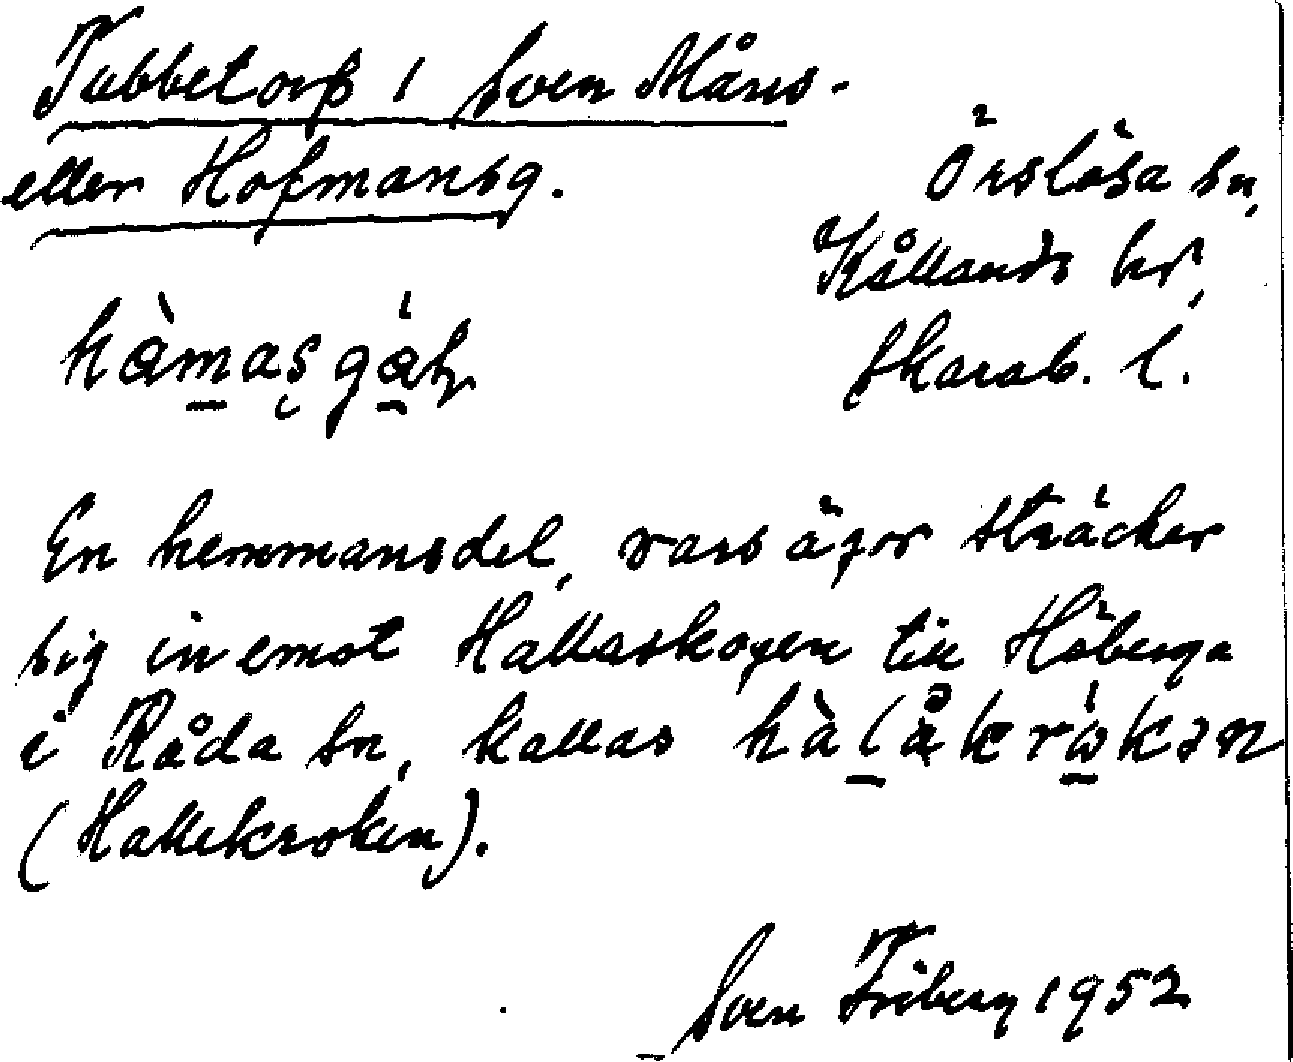 Tubbetorp 1 Sven Måns-
eller Hofmansg.
Örslösa sn,
Kållands hd,
Skarab. l.
En hemmansdel, vars ägor sträcker
sig in emot Hallaskogen till Höberga
i Råda sn, kallas hàlåkrókən
(Hallekroken).
Sven Friberg 1952